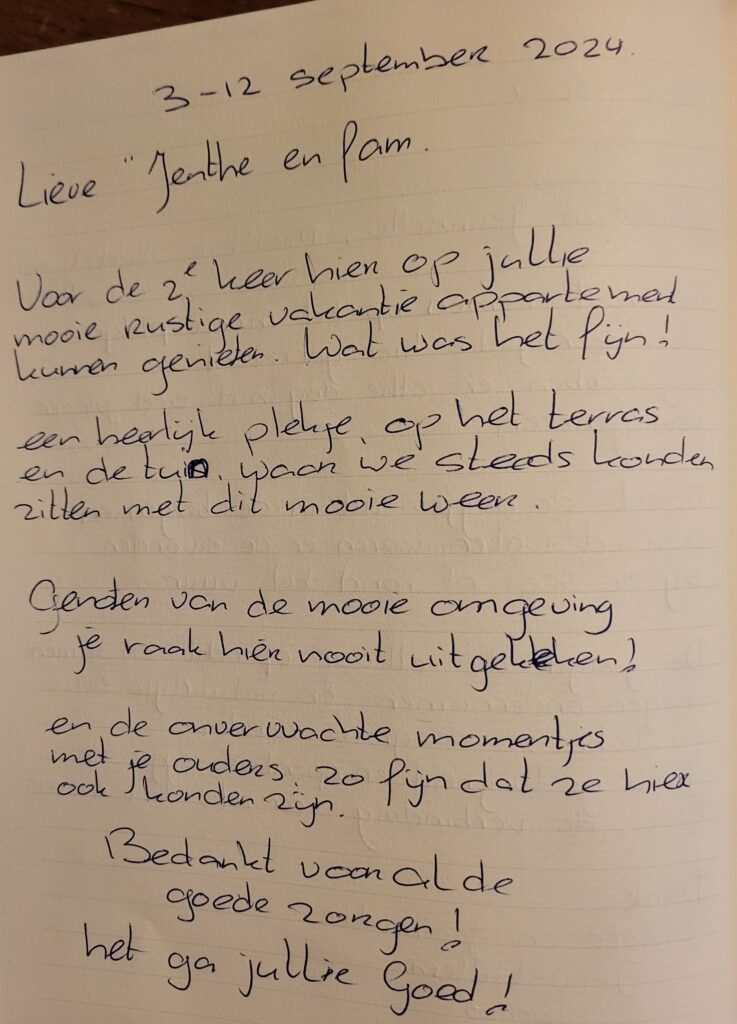 3-12 september 2024.
Lieve "Jenthe en Pam.
Voor de 2e keer hier op jullie
mooie rustige vakantie appartement
kunnen genieten. Wat was het fijn!
een heerlijk plekje, op het terras
en de tuin. waar we steeds konden
zitten met dit mooie weer.
Genoten van de mooie omgeving
je raak hier nooit uitgekeken!
en de onverwachte momentjes
met je ouders. zo fijn dat ze hier
ook konden zijn.
Bedankt voor al de
goede zorgen!
het ga jullie Goed!